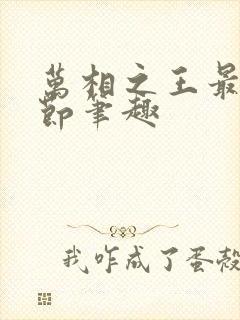 萬相之王最
節筆趣
我咋成了蛋殼